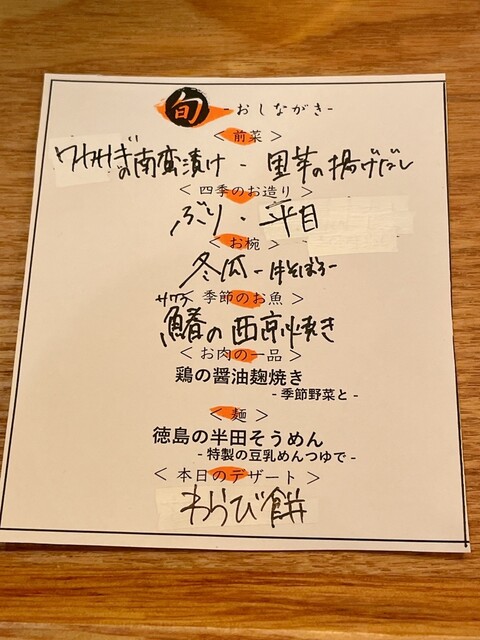 旬 -おしながき-
< 前菜 >
ワカサギの南蛮漬け - 里芋の揚げだし
< 四季のお造り >
ぶり・平目
< お椀 >
冬瓜 -牛そぼろ-
< 季節のお魚 >
サワラ
鰆の西京焼き
< お肉の一品 >
鶏の醤油麹焼き
- 季節野菜と -
< 麺 >
徳島の半田そうめん
- 特製の豆乳めんつゆで -
< 本日のデザート >
わらび餅